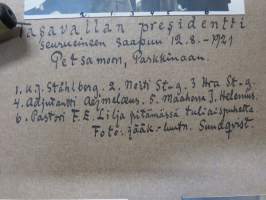 Tasavallan presidentti
seurueineen saapuu 12.8.-1921
Petsamoon, Parkkinaan.
1. K.J. Ståhlberg. 2. Neiti St-g. 3 Hra St-g.
4. Adjutantti Aejmelaeus. 5. Maaherra J. Helenius.
6. Pastori F.E. Lilja pitämässä tuliaispuhetta
Foto: jääk.-luutn. Sundqvist.